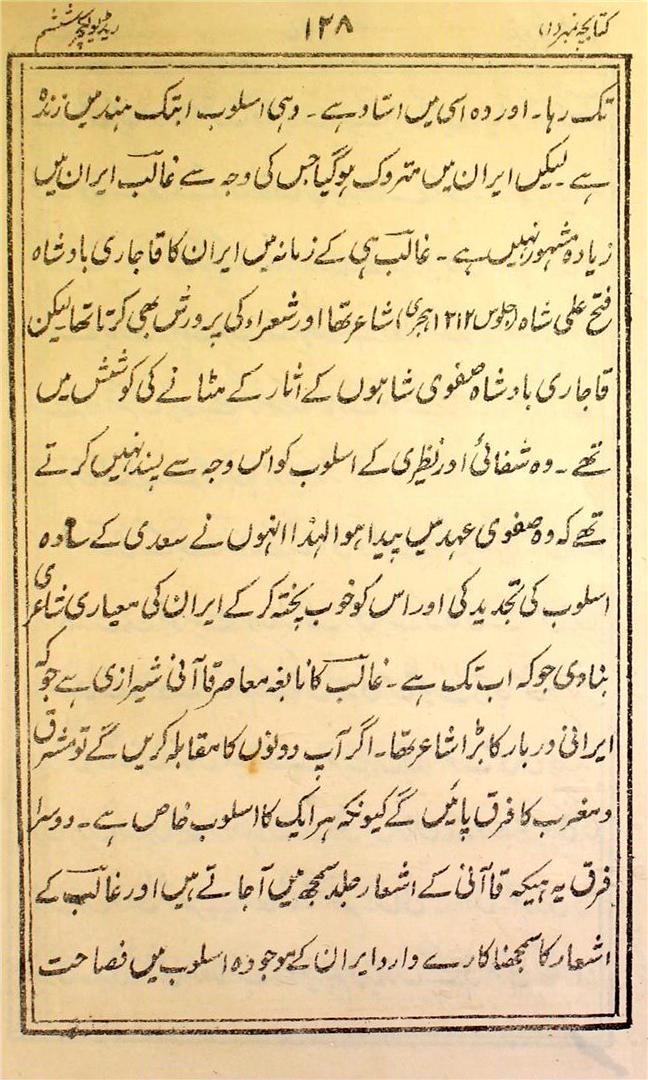 کتابچہ نمبر (۱) ۱۳۸ ریڈیو لیکچر ششم
تک رہا۔ اور وہ اسی میں استاد ہے۔ وہی اسلوب ابتک ہند میں زندہ
ہے لیکن ایران میں متروک ہوگیا جس کی وجہ سے غالبؔ ایران میں
زیادہ مشہور نہیں ہے۔ غالبؔ ہی کے زمانہ میں ایران کا قاجاری بادشاہ
فتح علی شاہ (جلوس ۱۲۱۲ ہجری) شاعر تھا اور شعراء کی پرورش بھی کرتا تھا لیکن
قاجاری بادشاہ صفوی شاہوں کے آثار کے مٹانے کی کوشش میں
تھے۔ وہ شفائی اور نظیری کے اسلوب کو اس وجہ سے پسند نہیں کرتے
تھے کہ وہ صفوی عہد میں پیدا ہوا لہٰذا انہوں نے سعدی کے سادہ
اسلوب کی تجدید کی اور اس کو خوب پختہ کرکے ایران کی معیاری شاعری
بنادی جوکہ اب تک ہے۔ غالبؔ کا نابغہ معاصر قاآنی شیرازی ہے جوکہ
ایرانی دربار کا بڑا شاعر تھا۔ اگر آپ دونوں کا مقابلہ کریں گے تو مشرق
و مغرب کا فرق پائیں گے کیونکہ ہر ایک کا اسلوب خاص ہے۔ دوسرا
فرق یہ ہیکہ قاآنی کے اشعار جلد سمجھ میں آجاتے ہیں اور غالبؔ کے
اشعار کا سمجھنا کارے دارد ایران کے موجودہ اسلوب میں فصاحت